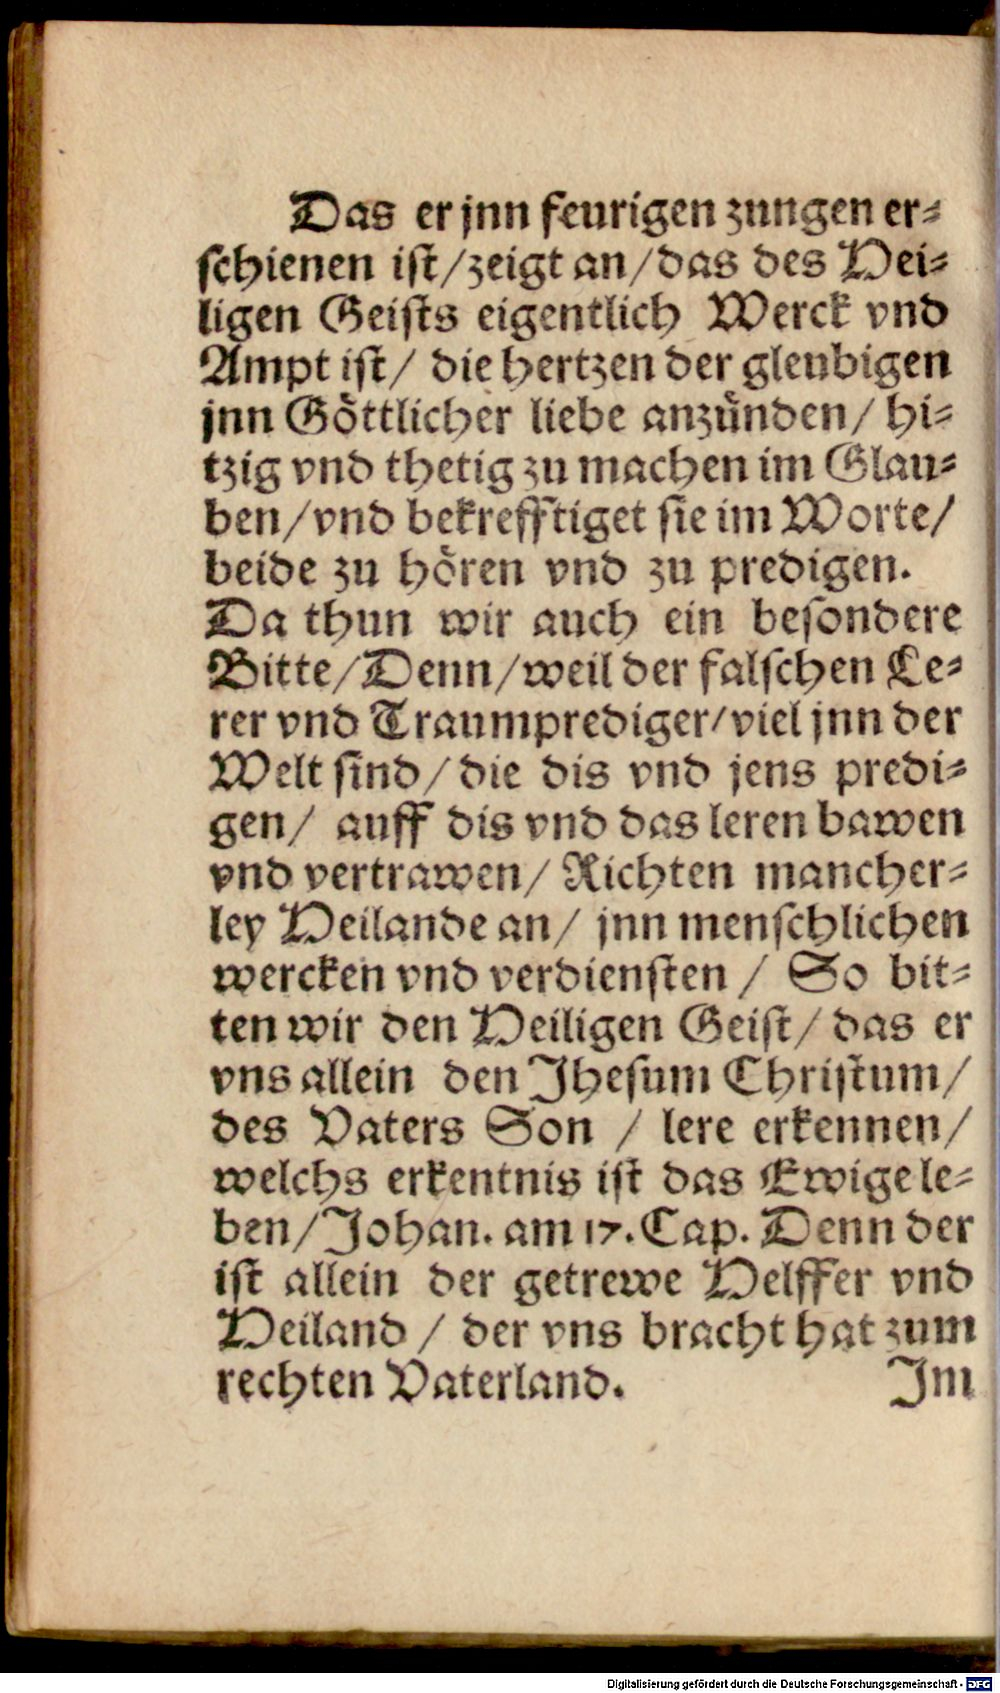 Das er jnn feurigen zungen er⸗
ſchienen iſt/zeigt an/das des Hei⸗
ligen Geiſts eigentlich Werck vnd
Ampt iſt/ die hertzen der gleubigen
jnn Goͤttlicher liebe anzuͤnden/ hi⸗
tzig vnd thetig zu machen im Glau⸗
ben/vnd bekrefftiget ſie im Worte/
beide zu hoͤren vnd zu predigen.
Da thun wir auch ein beſondere
Bitte/Denn/weil der falſchen Le⸗
rer vnd Traumprediger/viel jnn der
Welt ſind/die dis vnd jens predi⸗
gen/ auff dis vnd das leren bawen
vnd vertrawen/ Richten mancher⸗
ley Heilande an/ jnn menſchlichen
wercken vnd verdienſten / So bit⸗
ten wir den Heiligen Geiſt/ das er
vns allein den Jheſum Chriſtum/
des Vaters Son / lere erkennen/
welchs erkentnis iſt das Ewige le⸗
ben/Johan. am 17. Cap. Denn der
iſt allein der getrewe Helffer vnd
Heiland / der vns bracht hat zum
rechten Vaterland. Im
Digitalisierung gefördert durch die Deutsche Forschungsgemeinschaft - DFG